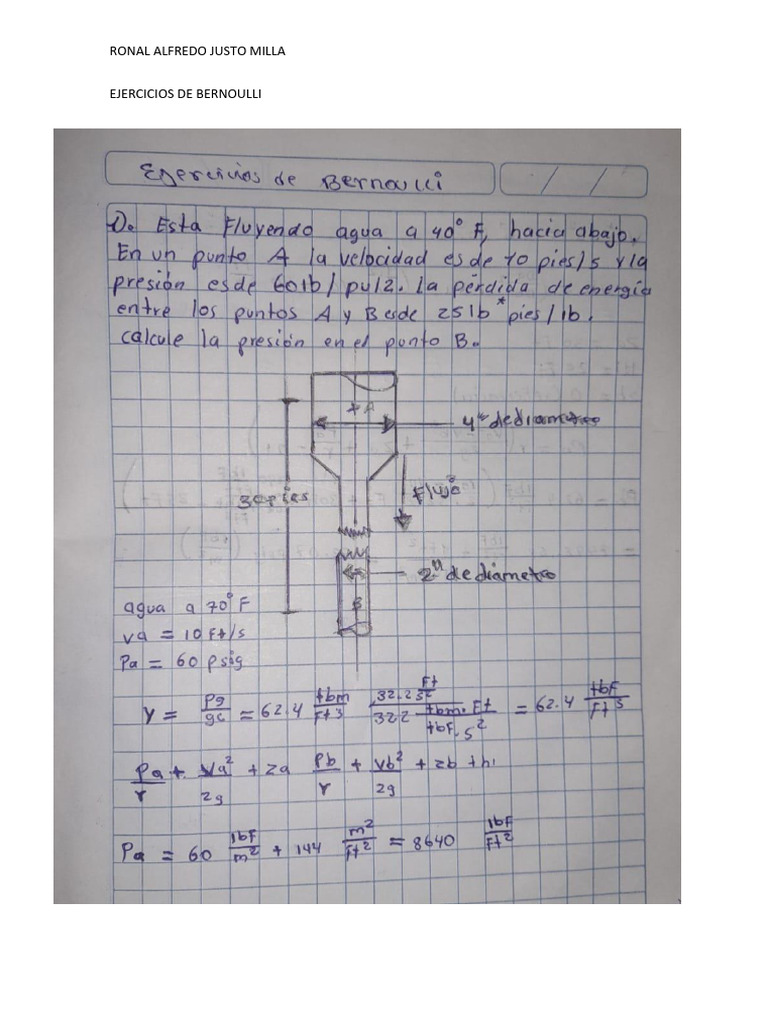 RONAL ALFREDO JUSTO MILLA
EJERCICIOS DE BERNOULLI
Ejercicios de Bernoulli
/ /
1). Esta Fluyendo agua a 40° F, hacia abajo.
En un punto A la velocidad es de 10 pies/s y la
presión es de 60 lb/pul2. la pérdida de energía
entre los puntos A y B es de 25 lb*pies/lb.
calcule la presión en el punto B.
A
4" de diametro
30 pies
Flujo
2" de diámetro
B
agua a 70° F
va = 10 Ft/s
Pa = 60 psig
γ = Pg/gc = 62.4 lbm/Ft3 32.2 Ft/s2 / 32.2 lbm.Ft/lbF.s2 = 62.4 lbF/Ft3
Pa/r + Va2/2g + za Pb/r + Vb2/2g + zb + hl
Pa = 60 lbF/m2 + 144 m2/Ft2 = 8640 lbF/Ft2